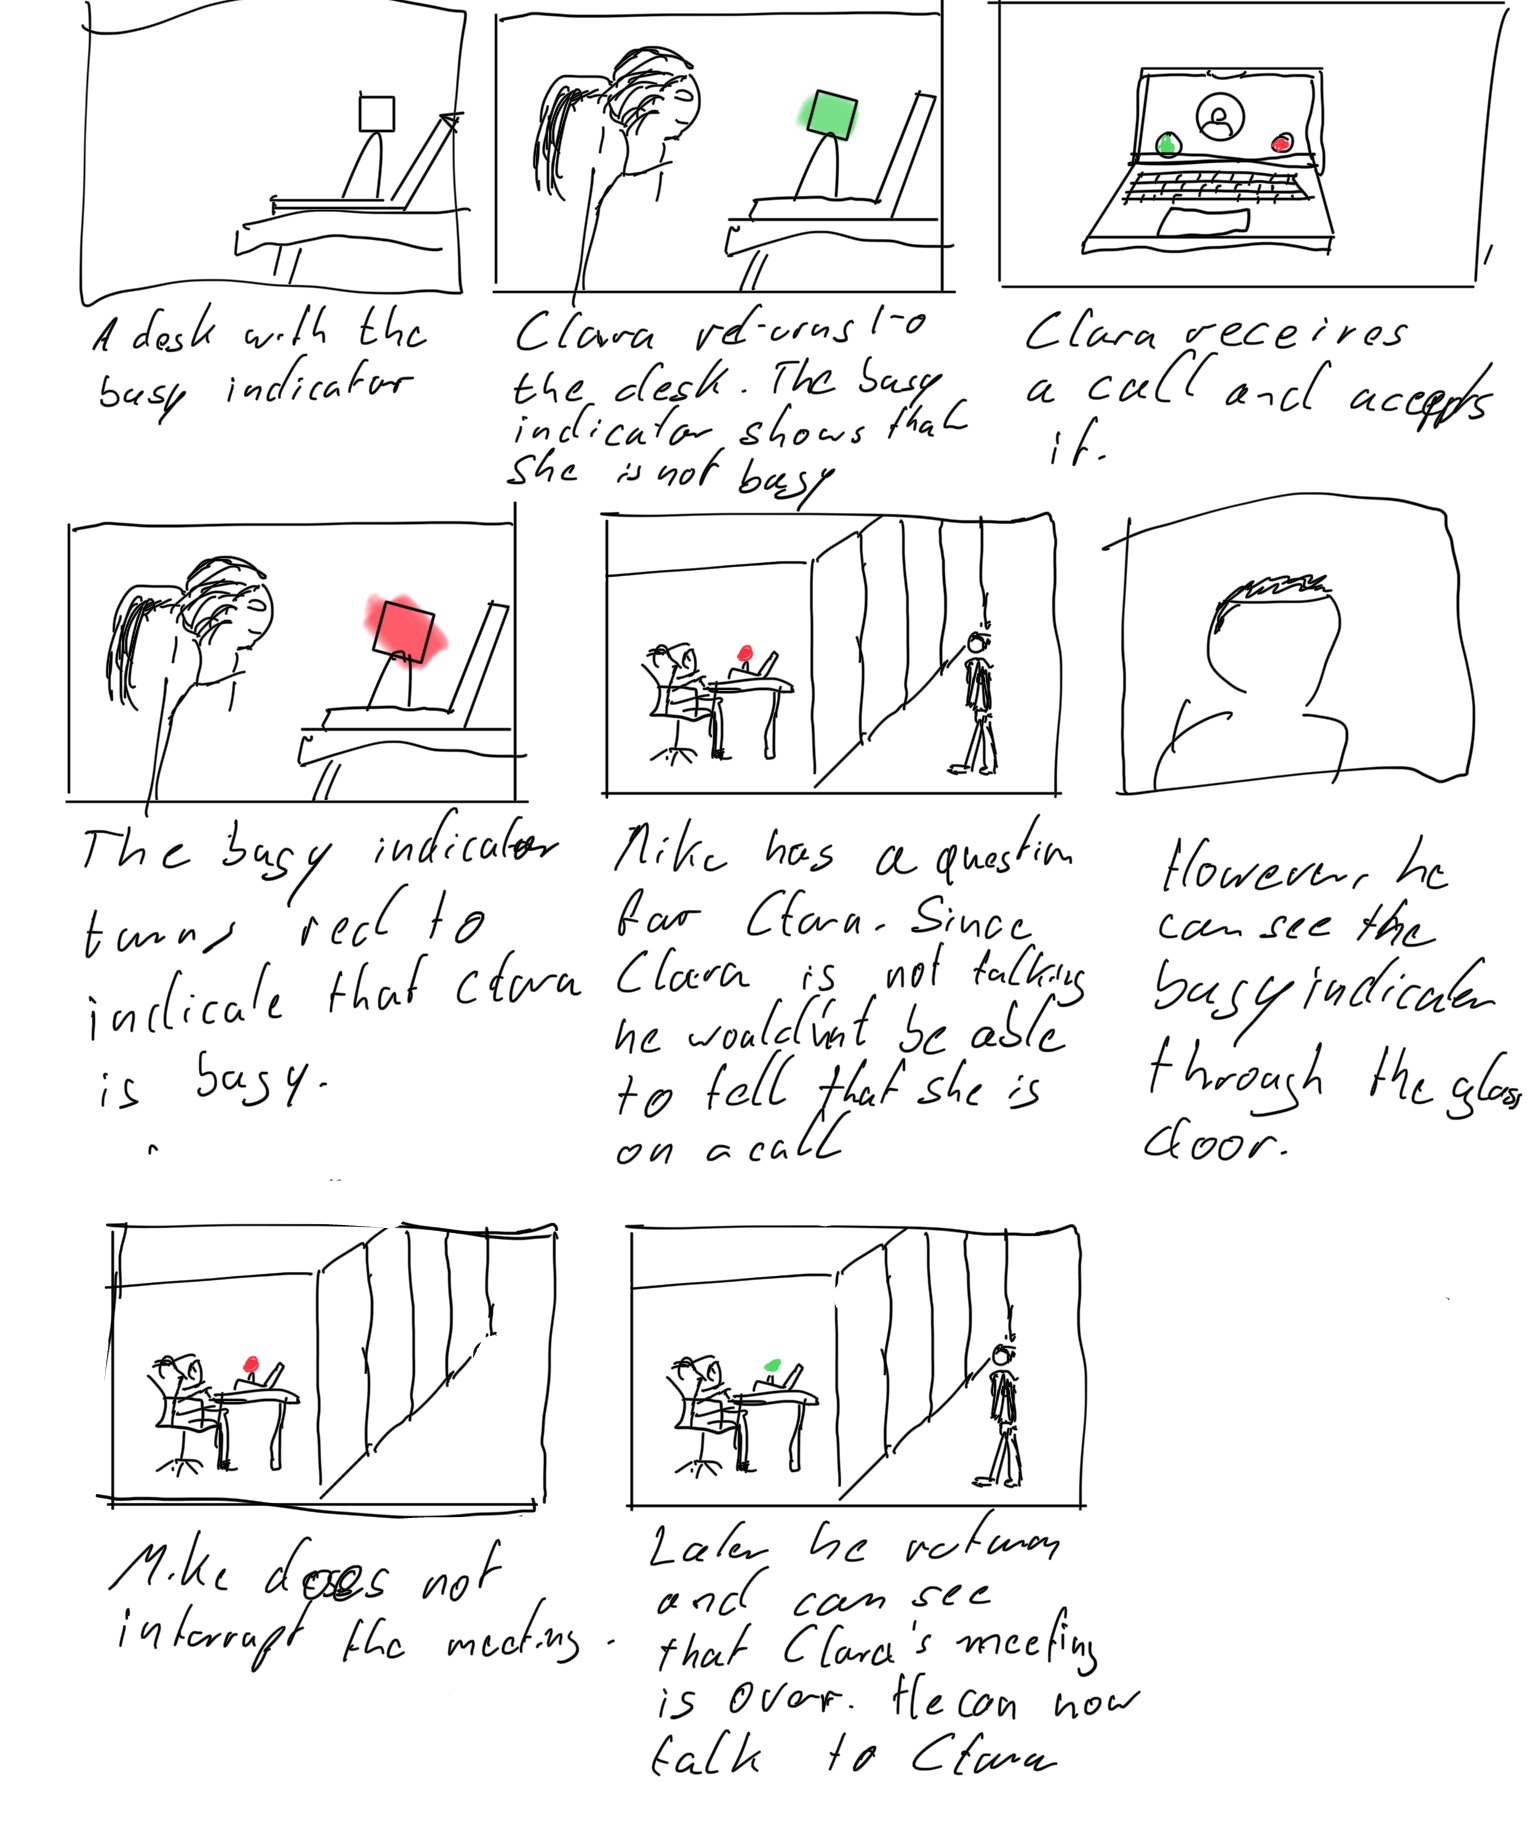 A desk with the
busy indicator
Clara returns to
the desk. The busy
indicator shows that
she is not busy
Clara receives
a call and accepts
it.
The busy indicator
turns red to
indicate that Clara
is busy.
Mike has a question
for Clara. Since
Clara is not talking
he wouldn't be able
to tell that she is
on a call
However, he
can see the
busy indicator
through the glass
door.
Mike does not
interrupt the meeting.
Later he returns
and can see
that Clara's meeting
is over. He can now
talk to Clara